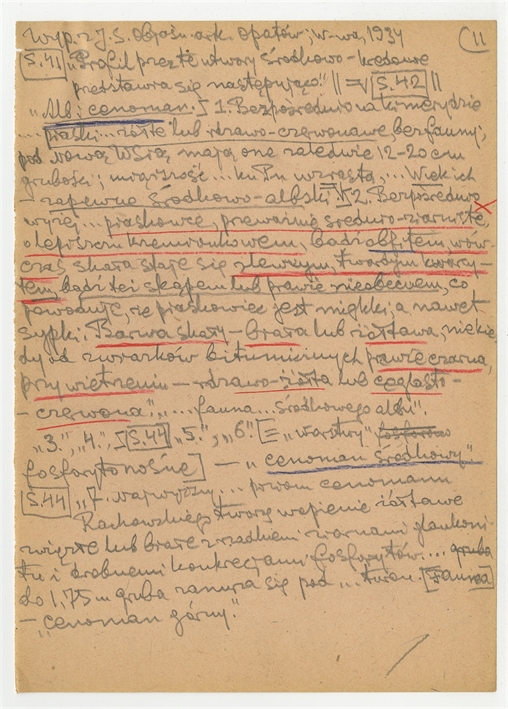 Wyp. z J. S. Objaśn. ark. Opatów; W-wa, 1934 (11
[S. 41] "Profil przez te utwory środkowo-kredowe
przedstawia się następująco:" || =√ [S. 42] ||
"Alb i cenoman.] 1. Bezpośrednio na kimerydzie
.... piaski ... żółte lub rdzawo-czerwonawe, bez fauny;
pod Nową Wsią mają one zaledwie 12-20 cm
grubości; miąższość ... ku Pn wzrasta, ... Wiek ich
- zapewne środkowo-albski.] 2. Bezpośrednio
wyżej ... piaskowce, przeważnie średnio-ziarniste,
o lepiszczu krzemionkowem, bądź obfitem, wów-
czas skała staje się zlewnym, twardym kwarcy-
tem, bądź też skąpem lub prawie nieobecnem, co
powoduje, że piaskowiec jest miękki, a nawet
sypki. Barwa skały - biała lub żółtawa, niekie-
dy od zwiazków bitumicznych prawie czarna,
przy wietrzeniu - rdzawo-żółta lub ceglasto-
- czerwona", .... fauna ... środkowego albu".
"3.", "4.", [S. 44] "5.", "6." [= "warstwy"
fosforytonośne] - "cenoman środkowy"
[S. 44] "7. najwyższy ... poziom cenomanu
Rachowskiego tworzą wapienie żółtawe
zwięzłe lub białe z rzadkiemi ziarnami glaukoni-
tu i drobnemi konkrecjami fosforytów .... gruba
do 1,75 m gruba zanurza się pod ... turon. [Fauna]
- "cenoman górny."